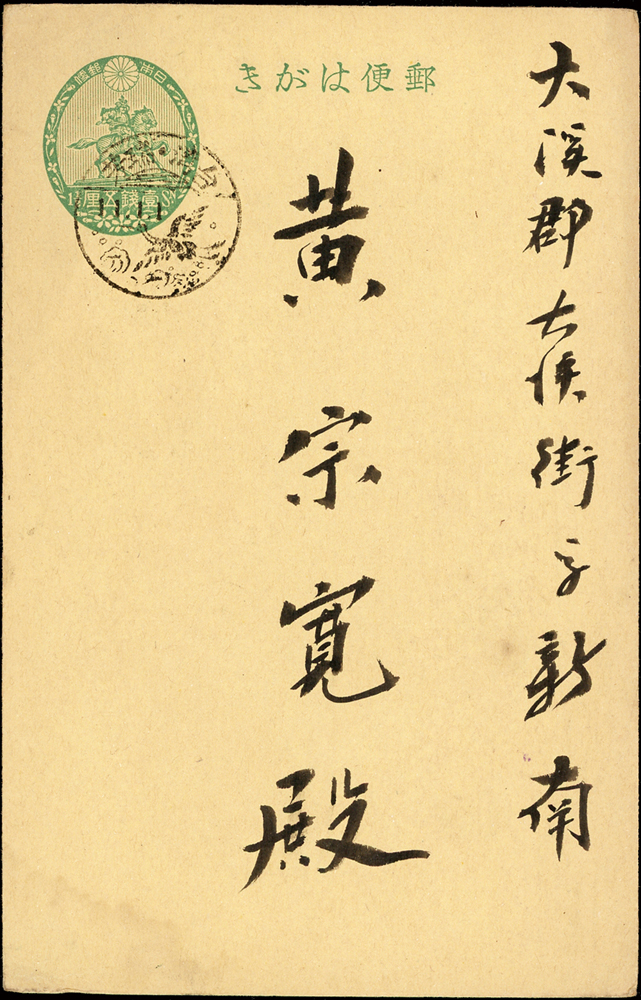 郵便はがき
大溪郡大溪街字新南
黄宗寬殿
日本郵便
壹錢五厘
1½ Sn
11.11